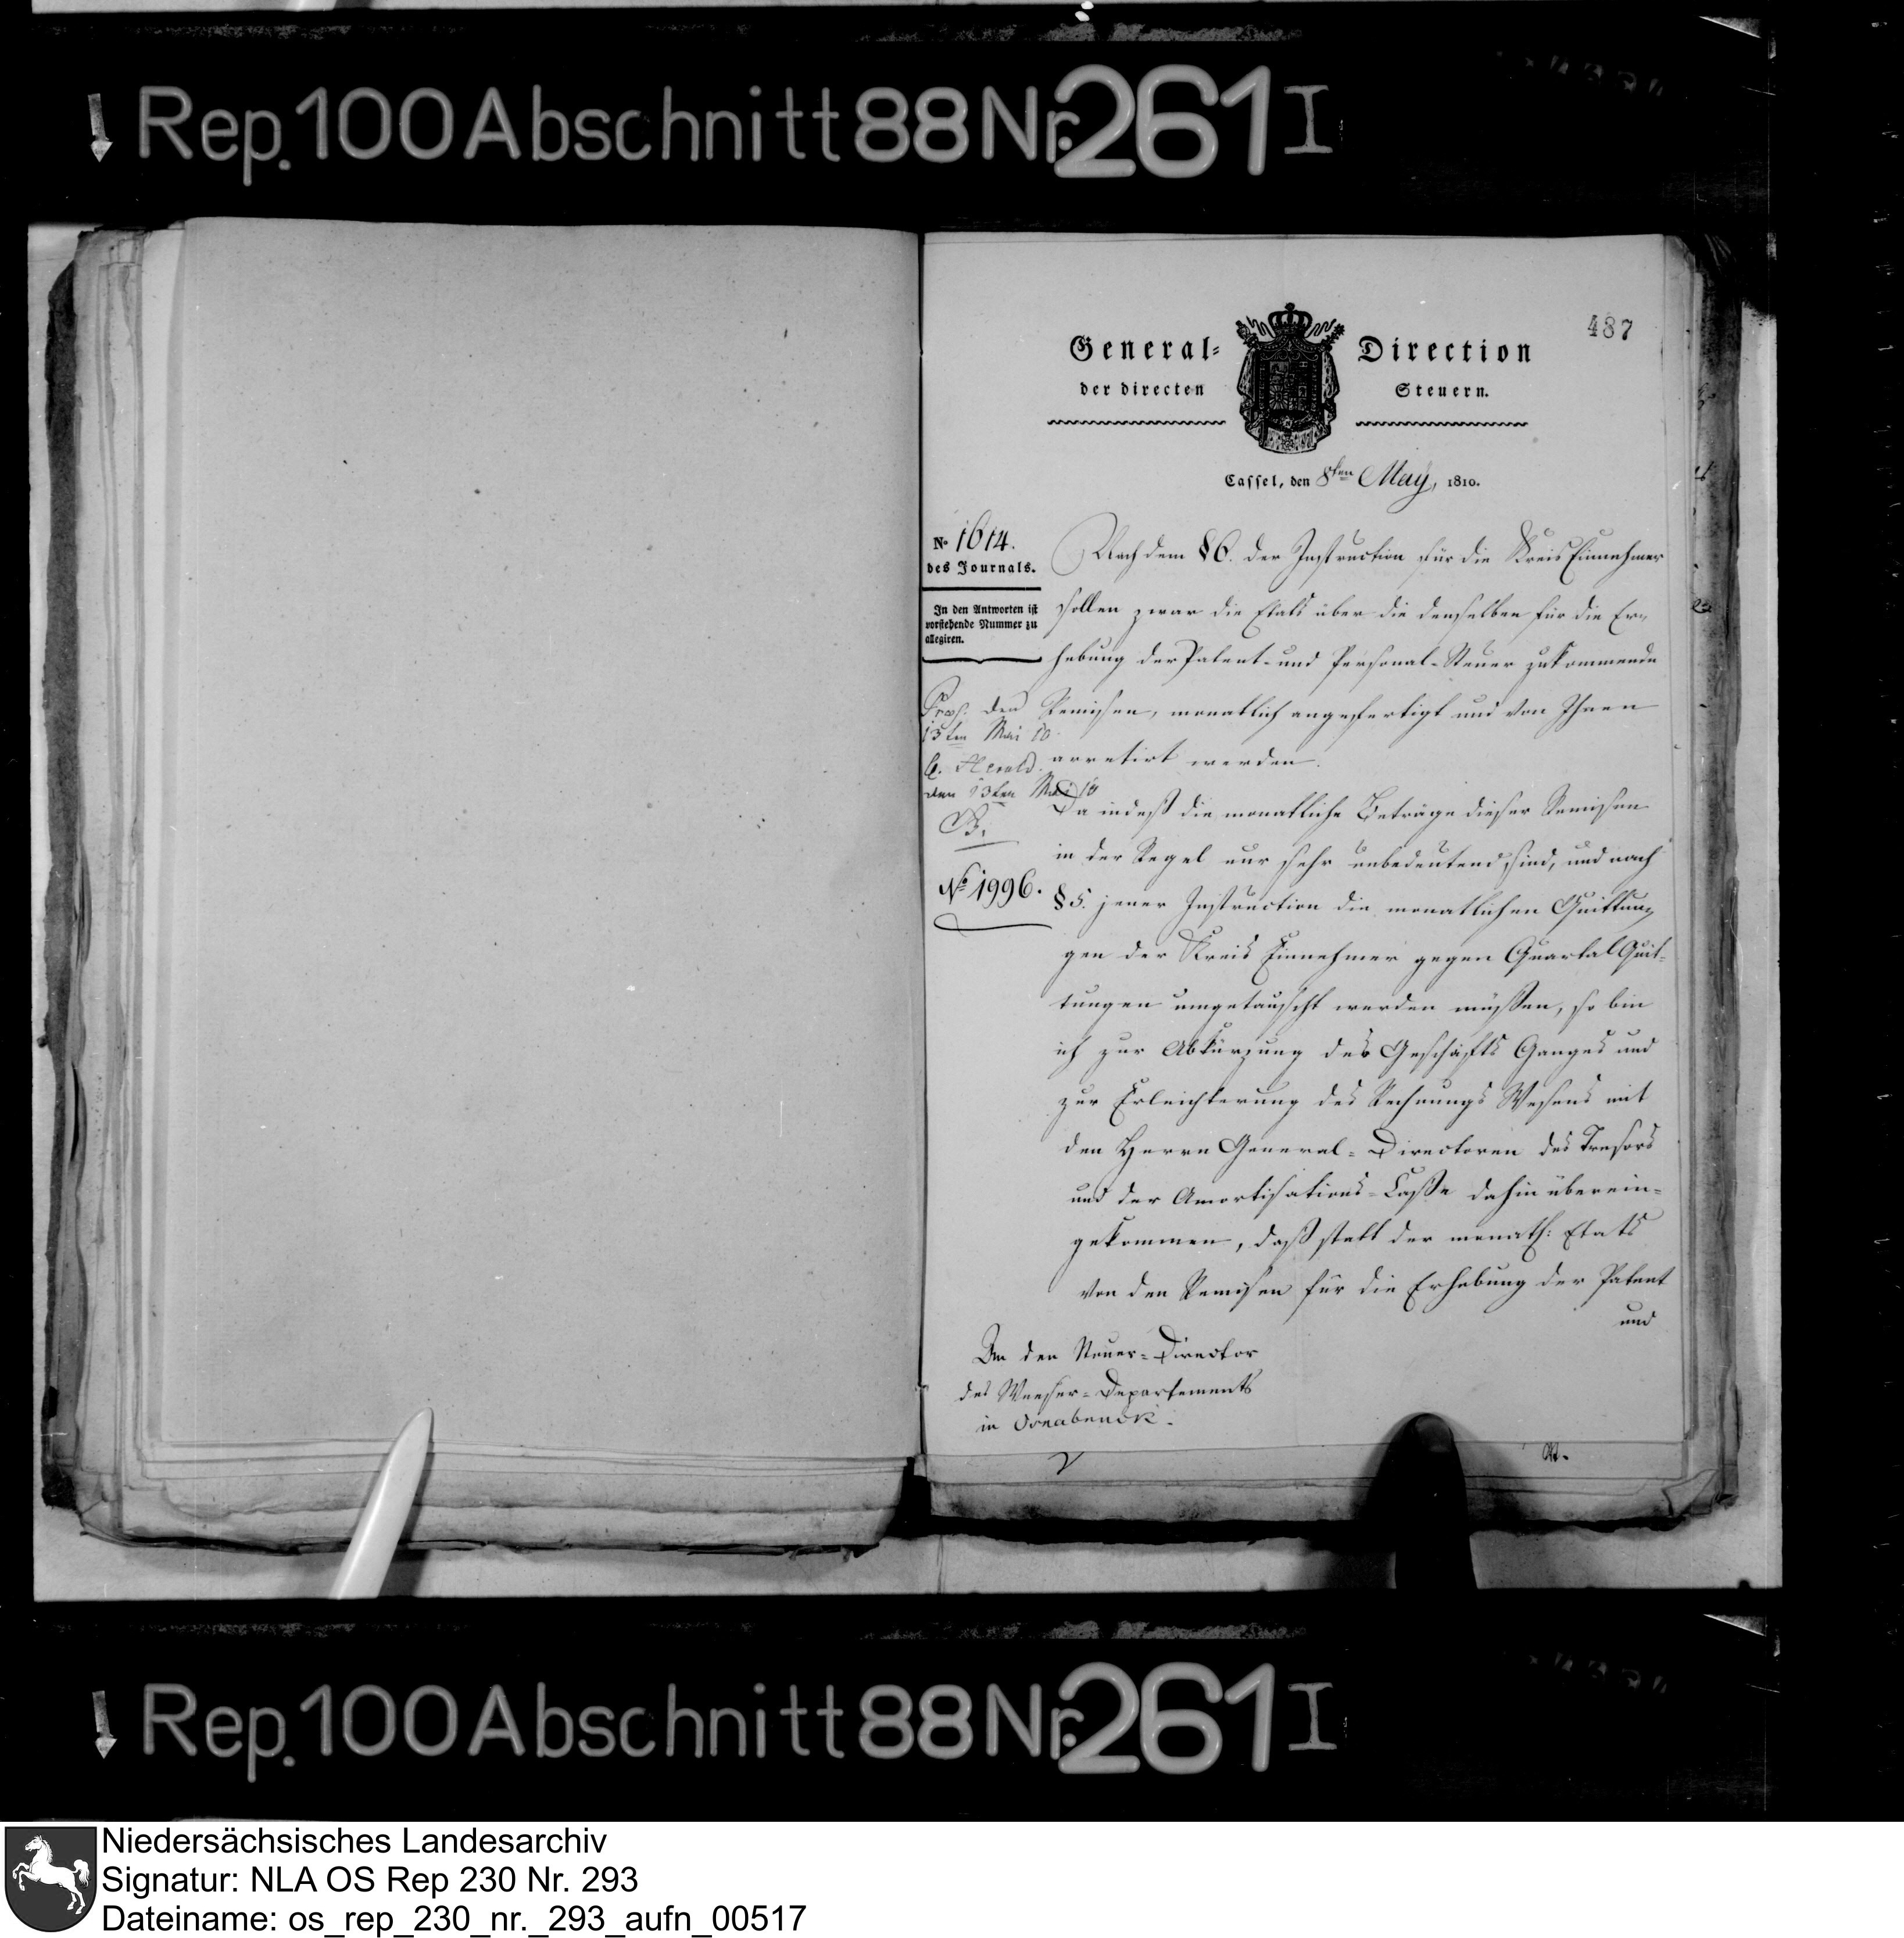 Rep. 100 Abschnitt 88 Nr. 261 I
487
General- Direction
der directen Steuern.
Cassel, den 8ten May, 1810.
No 1614.
des Journals.
In den Antworten ist
vorstehende Nummer zu
allegiren.
Präs. den
13ten Mai 10
C. Herold.
den 13ten Mai 10
B.
No 1996.
Nach dem §6. der Instruction für die Kreis Einnehmer
sollen zwar die Etats über die denselben für die Er-
hebung der Patent- und Personal-Steuer zukommende
Remisen, monatlich angefertigt und von Ihnen
arretirt werden.
Da indeß die monatliche Beträge dieser Remisen
in der Regel nur sehr unbedeutend sind, und nach
§5. jener Instruction die monatlichen Quittun-
gen der Kreis Einnehmer gegen Quartal Quit-
tungen umgetauscht werden müssen, so bin
ich zur Abkürzung des Geschäfts Ganges und
zur Erleichterung des Rechnungs Wesens mit
den Herrn General-Directoren des Tresors
und der Amortisations-Casse dahin überein-
gekommen, daß statt der monatl: Etats
von den Remisen für die Erhebung der Patent
und
An den Steuer-Director
des Weeser-Departements
in Osnabruck.
Rep. 100 Abschnitt 88 Nr. 261 I
Niedersächsisches Landesarchiv
Signatur: NLA OS Rep 230 Nr. 293
Dateiname: os_rep_230_nr._293_aufn_00517